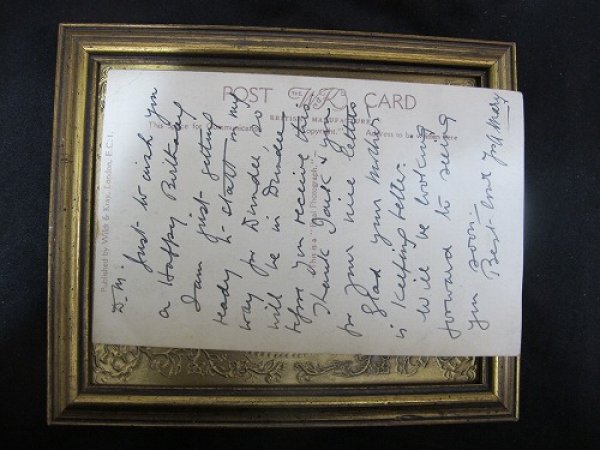 POST CARD
THE
W&K
BRITISH MANUFACTURE
This space for Communication
"Copyright."
Address to be written here
This is a "Real Photograph."
Published by Wildt & Kray, London, E.C.1.
D. M.
Just to wish you
a Happy Birthday
I am just getting
ready to start on my
way for Dundee, so
will be in Dundee
before you receive this
Thank Jack & you
for your nice letters
Glad your mother
is keeping better.
Will be looking
forward to seeing
you soon.
Best love
Mary